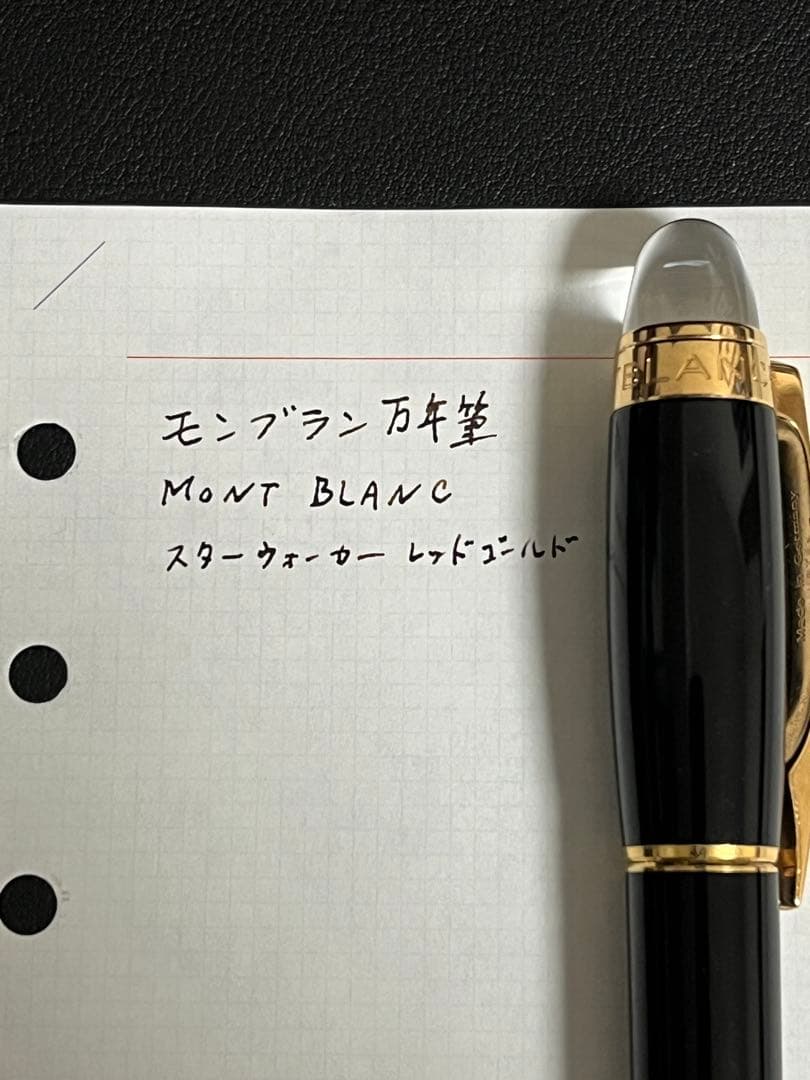 モンブラン万年筆
MONT BLANC
スターウォーカー レッドゴールド
BLANC
Made in Germany